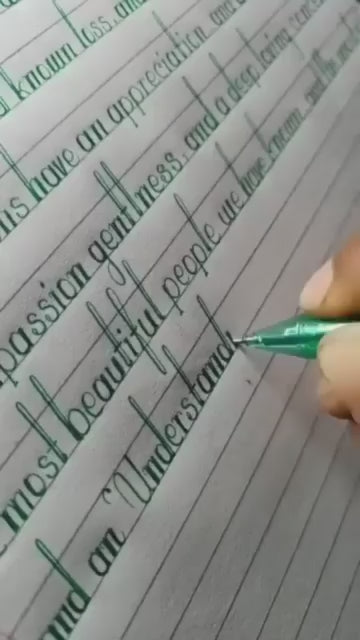 known loss, and
have an appreciation, and
passion gentlness, and a deep loving
most beautiful people we have known,
and an "Understand